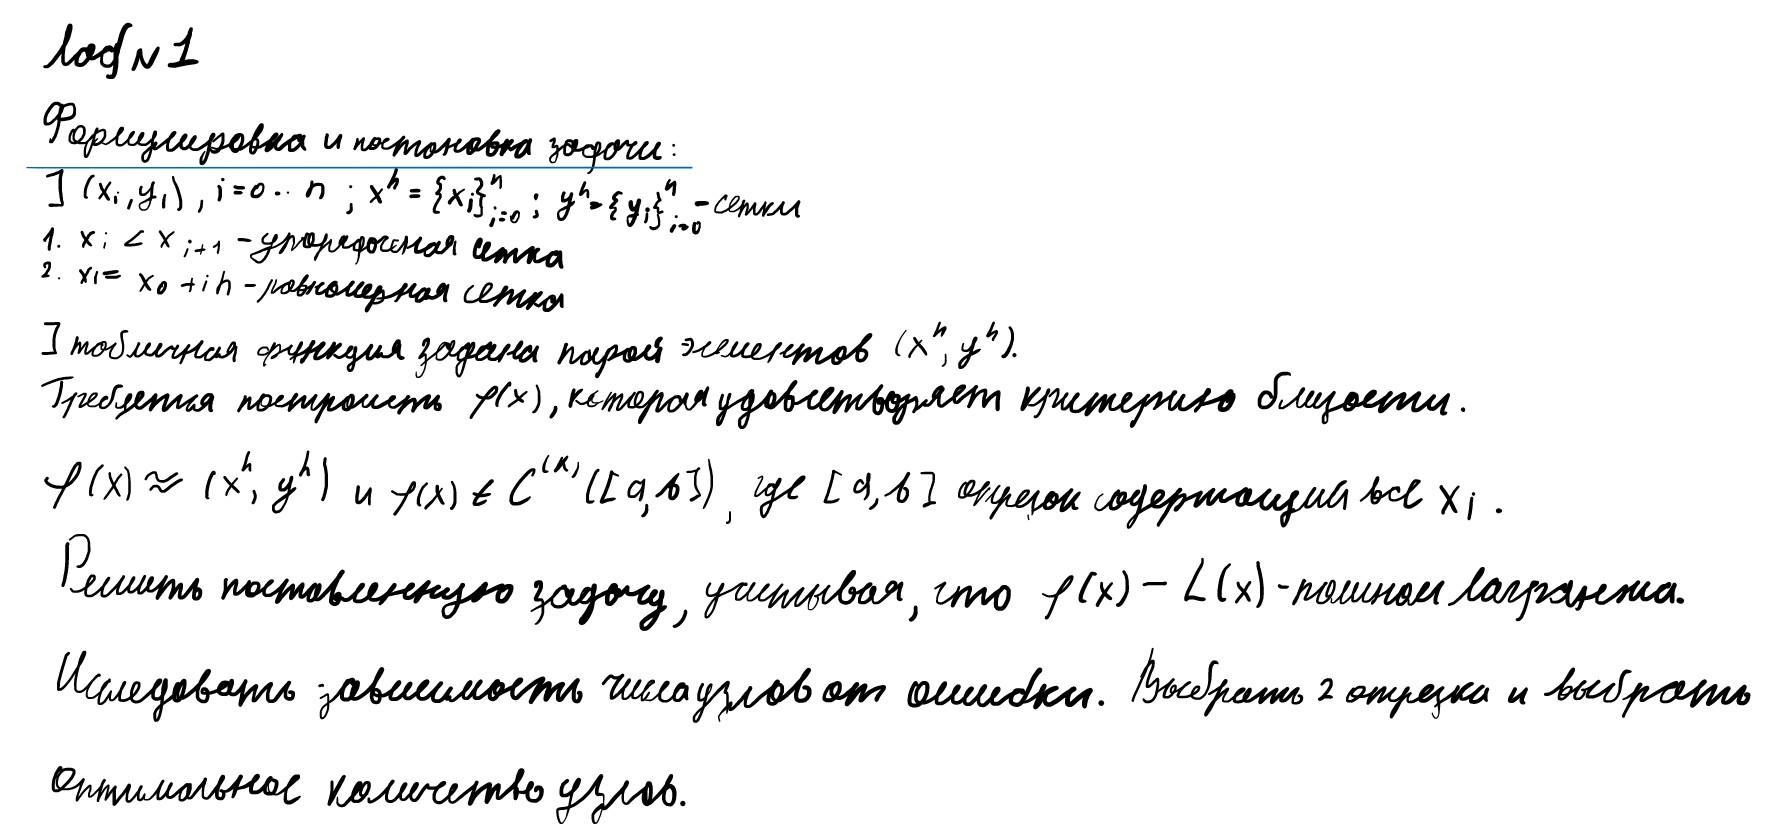 Лаб N 1
Формулировка и постановка задачи:
] (xᵢ, yᵢ), i=0..n ; xʰ = {xᵢ}ⁿᵢ₌₀ ; yʰ = {yᵢ}ⁿᵢ₌₀ - сетки
1. xᵢ < xᵢ₊₁ - упорядоченная сетка
2. xᵢ = x₀ + ih - равномерная сетка
] табличная функция задана парой элементов (xʰ, yʰ).
Требуется построить φ(x), которая удовлетворяет критерию близости.
φ(x) ≈ (xʰ, yʰ) и φ(x) ∈ C⁽ᴷ⁾([a,b]), где [a,b] отрезок содержащий все xᵢ.
Решить поставленную задачу, учитывая, что φ(x) - L(x) - полином Лагранжа.
Исследовать зависимость числа узлов от ошибки. Выбрать 2 отрезка и выбрать
оптимальное количество узлов.